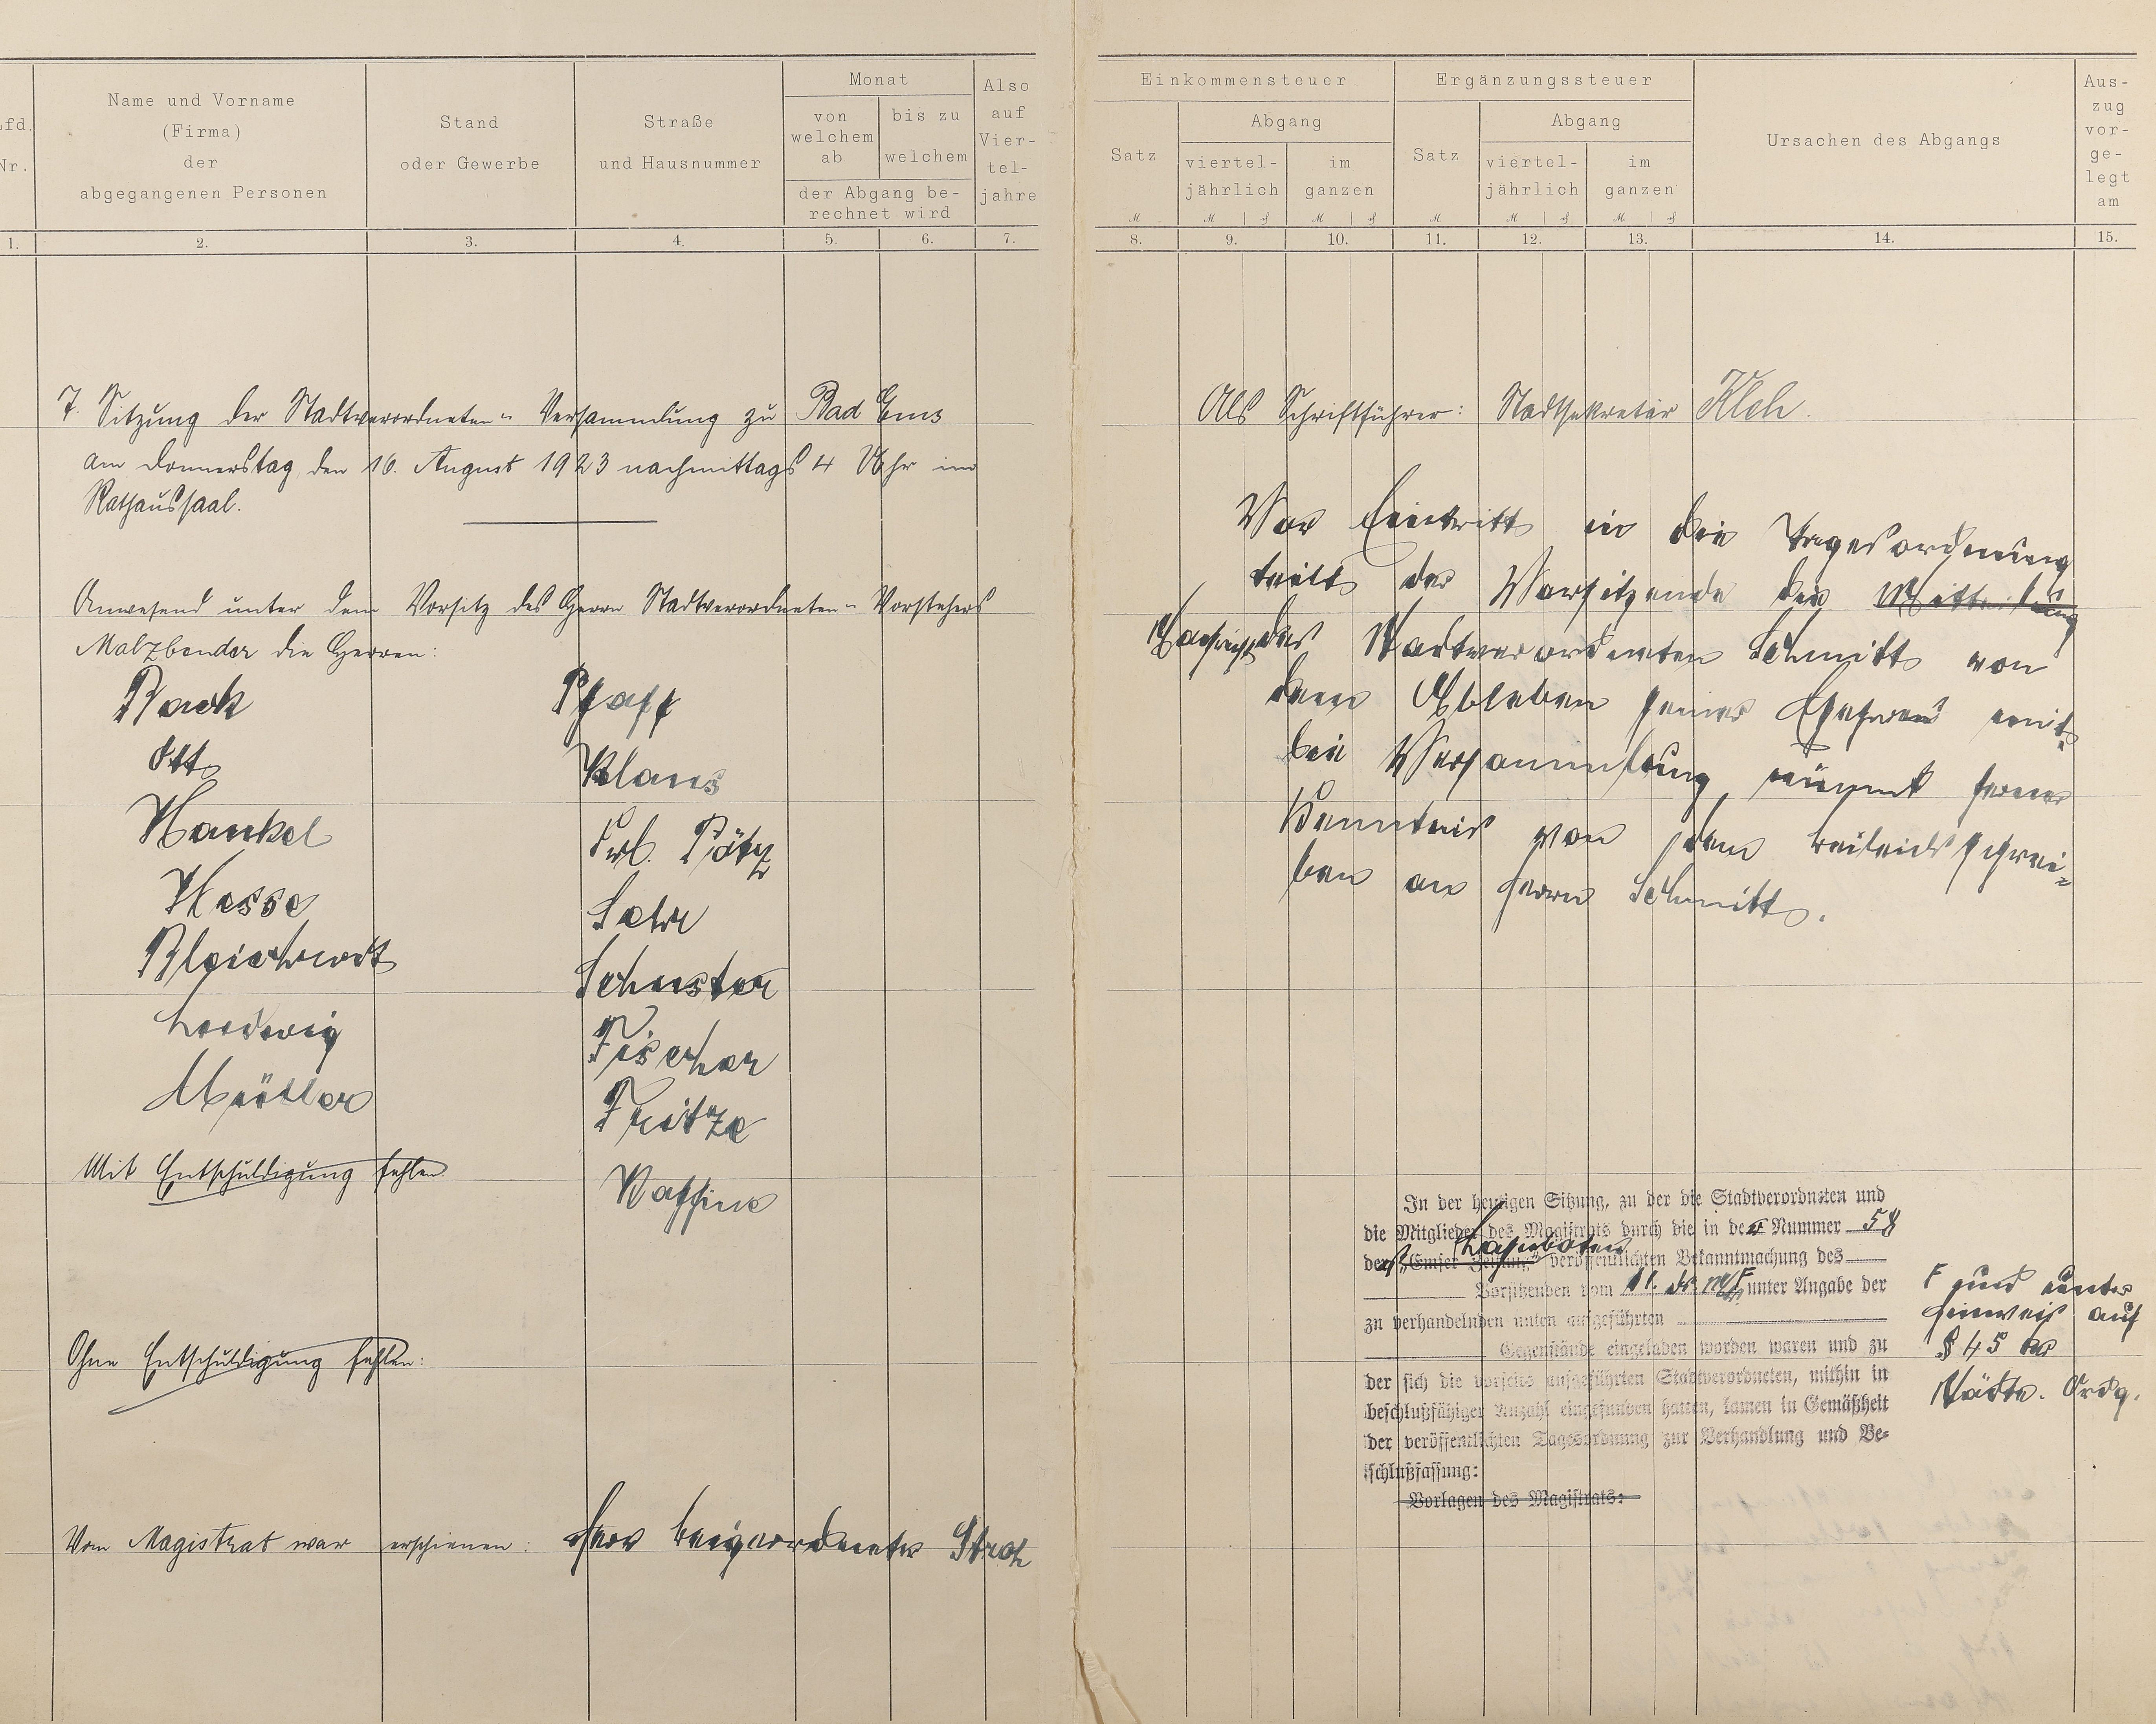 Lfd. Nr.
Name und Vorname
(Firma)
der
abgegangenen Personen
Stand
oder Gewerbe
Straße
und Hausnummer
Monat
von welchem ab
bis zu welchem
der Abgang be-
rechnet wird
Also auf Vier-tel-jahre
1. 2. 3. 4. 5. 6. 7.
7. Sitzung der Stadtverordneten-Versammlung zu Bad Ems
am Donnerstag, den 16. August 1923 nachmittags 4 Uhr im
Rathaussaal.
Anwesend unter dem Vorsitz des Herrn Stadtverordneten-Vorstehers
Malzbender die Herren:
Back Pfaff
Ott Klaus
Hankel Frl. Pötz
Hesse
Schuster
Ludwig Fischer
Müller Fritze
Mit Entschuldigung fehlen
Ohne Entschuldigung fehlen:
Vom Magistrat war erschienen: Herr Beigeordneter Stroh
Einkommensteuer
Satz
Abgang
viertel-
jährlich
im
ganzen
Ergänzungssteuer
Satz
Abgang
viertel-
jährlich
im
ganzen
Ursachen des Abgangs
Aus-
zug
vor-
ge-
legt
am
8. 9. 10. 11. 12. 13. 14. 15.
Als Schriftführer: Stadtsekretär
Vor Eintritt in die Tagesordnung
teilt der Vorsitzende die Mitteilung
Nachricht des Stadtverordneten Schmitt von
dem Ableben seiner Ehefrau mit.
Die Versammlung nimmt ferner
Kenntnis von dem Beileidsschrei-
ben an Herrn Schmitt.
In der heutigen Sitzung, zu der die Stadtverordneten und
die Mitglieder des Magistrats durch die in der Nummer 58
des „Emser Zeitung" Lahnboten veröffentlichten Bekanntmachung des
Vorsitzenden vom 11. ds. Mts. unter Angabe der
zu verhandelnden unten aufgeführten
Gegenstände eingeladen worden waren und zu
der sich die vorseits aufgeführten Stadtverordneten, mithin in
beschlußfähiger Anzahl eingefunden hatten, kamen in Gemäßheit
der veröffentlichten Tagesordnung zur Verhandlung und Be-
schlußfassung:
Vorlagen des Magistrats:
F und unter
Hinweis auf
§ 45 der
Städte. Ordg.